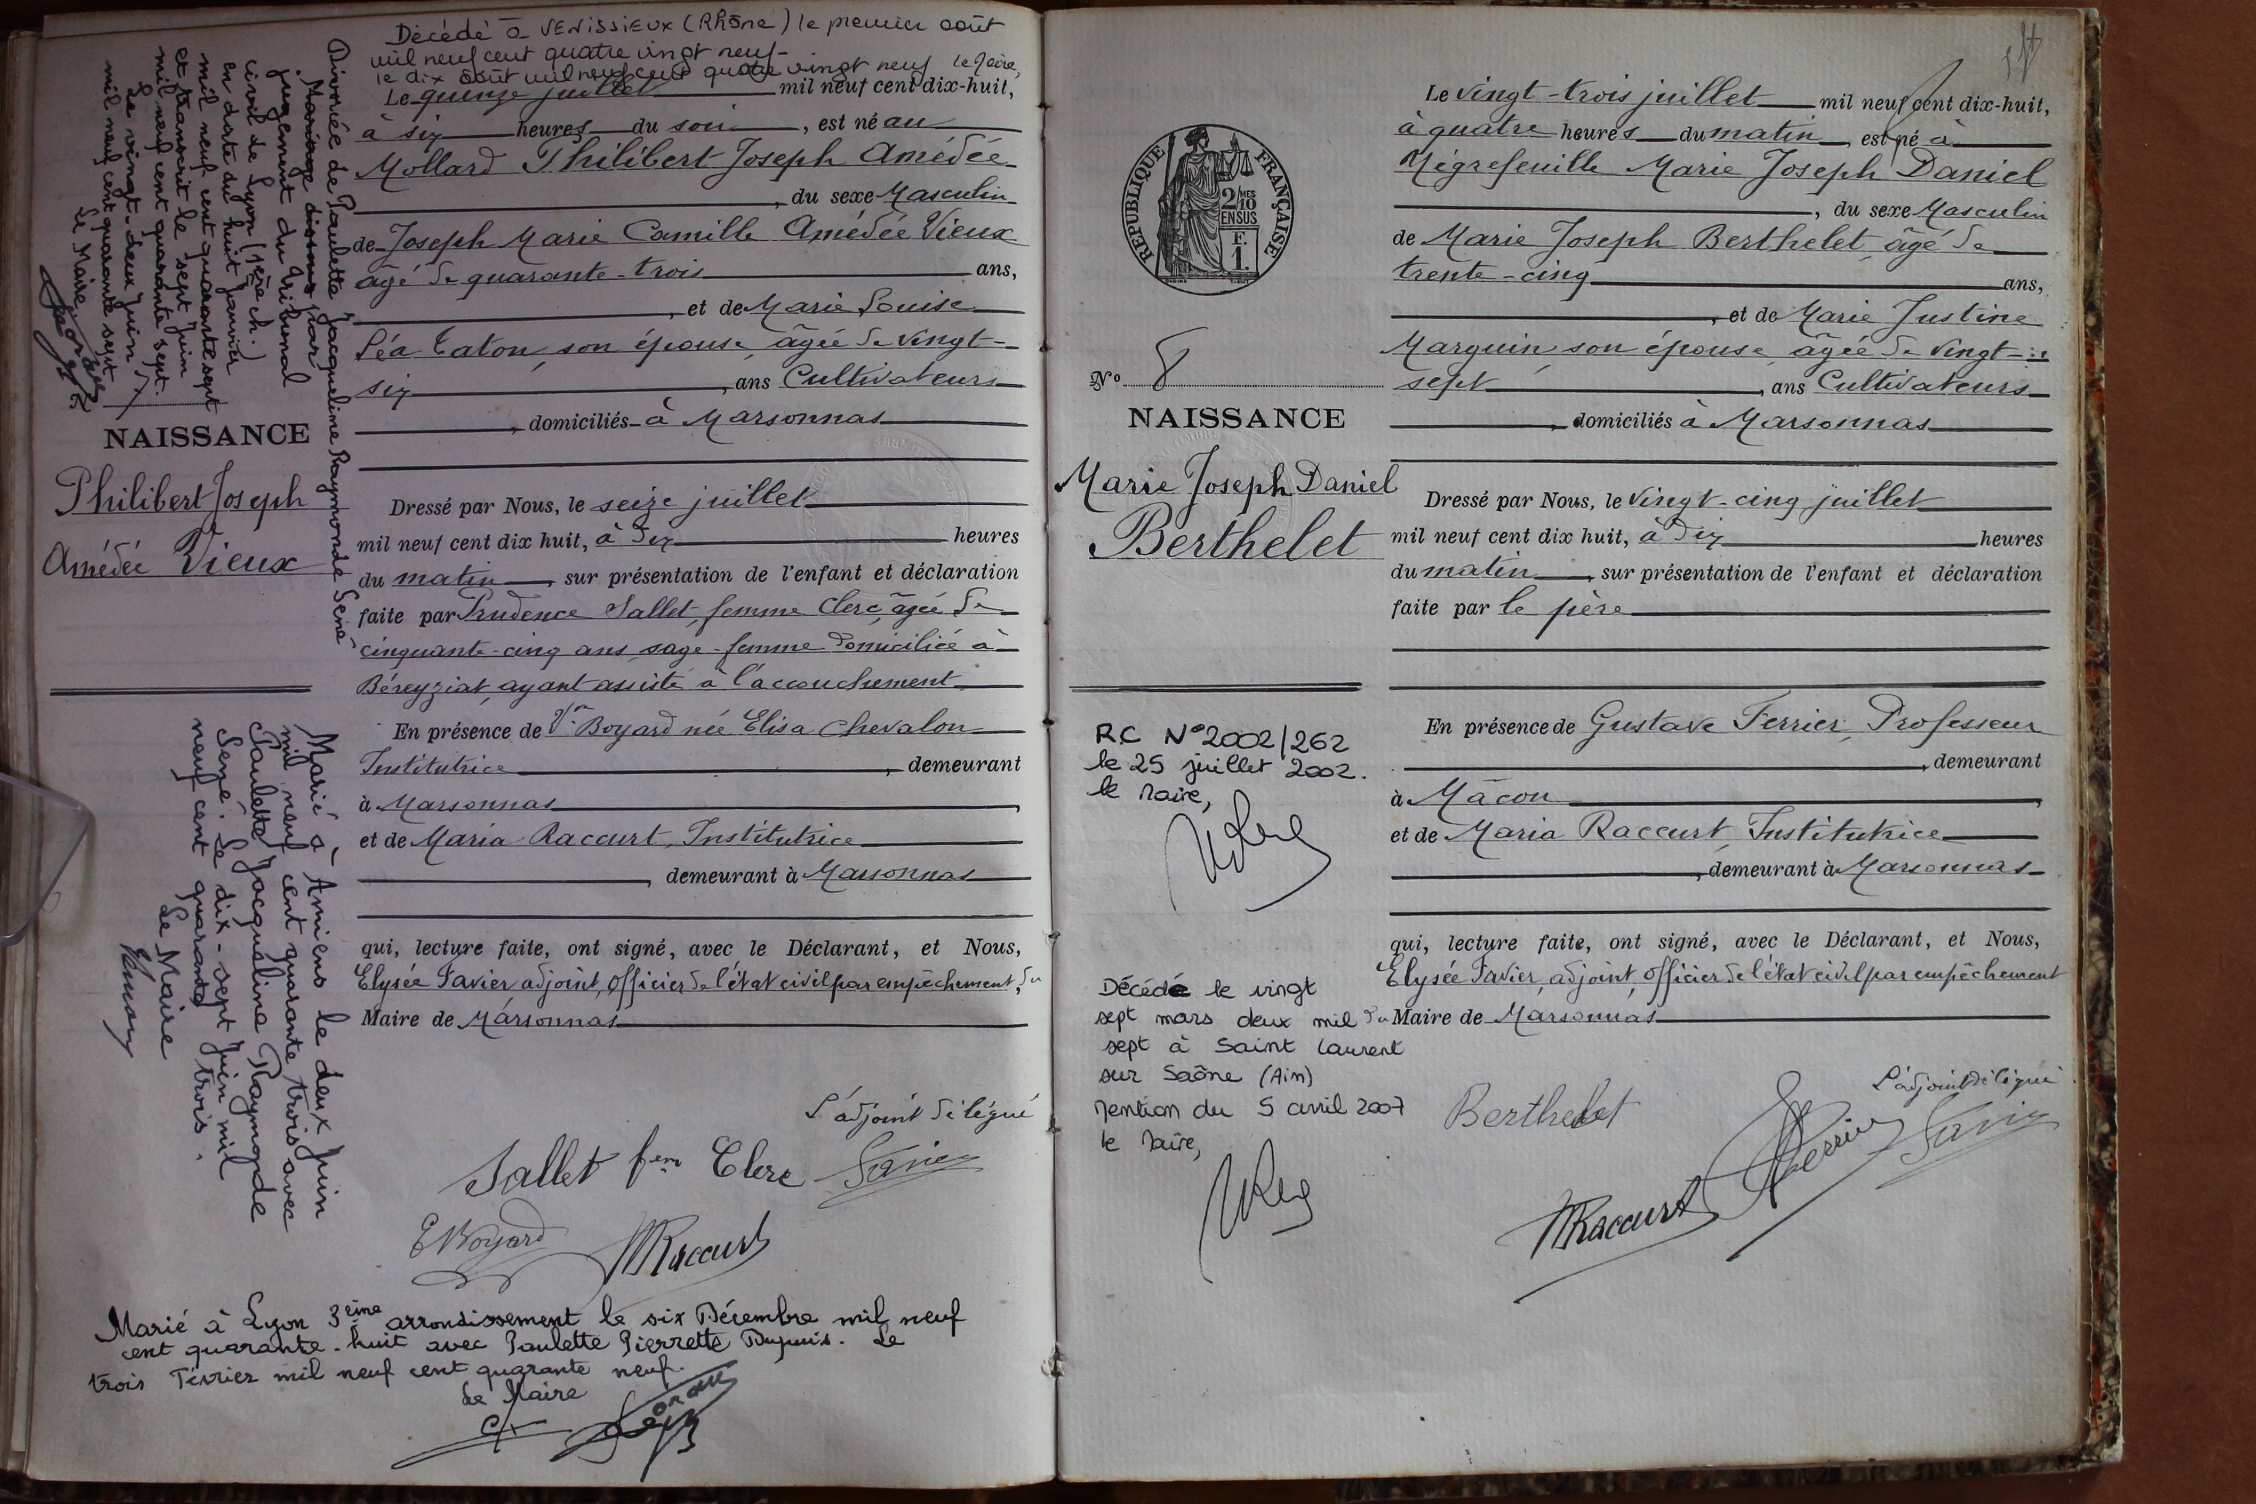 Décédé à VENISSIEUX (Rhône) le premier août
mil neuf cent quatre vingt neuf -
le dix août mil neuf cent quatre vingt neuf le Maire,
Le quinze juillet mil neuf cent dix-huit,
à six heures du soir, est né au
Mollard Philibert Joseph Amédée
, du sexe Masculin
de Joseph Marie Camille Amédée Vieux
âgé de quarante-trois ans,
, et de Marie Louise
Léa Caton, son épouse, âgée de vingt-
six, ans Cultivateurs
, domiciliés à Marsonnas
Dressé par Nous, le seize juillet
mil neuf cent dix huit, à dix heures
du matin, sur présentation de l'enfant et déclaration
faite par Prudence Sallet, femme Clerc, âgée de
cinquante-cinq ans, sage-femme domiciliée à
Béreyziat, ayant assisté à l'accouchement
En présence de Vve Boyard née Elisa Chevalon
Institutrice, demeurant
à Marsonnas,
et de Maria Raccurt, Institutrice
, demeurant à Marsonnas
qui, lecture faite, ont signé, avec le Déclarant, et Nous,
Elysée Favier adjoint, officier de l'état civil par empêchement, du
Maire de Marsonnas
L'adjoint délégué
Sallet fem Clerc Favier
E Boyard MRaccurt
Marié à Lyon 3ème arrondissement le six Décembre mil neuf
cent quarante-huit avec Paulette Pierrette Dupuis. Le
trois Février mil neuf cent quarante neuf.
Le Maire
Divorcée de Paulette Jacqueline Raymonde Sené
Mariage dissous par
jugement du tribunal
civil de Lyon (1ère ch.)
en date du huit janvier
mil neuf cent quarante sept
et transcrit le sept juin
mil neuf cent quarante sept.
Le vingt-deux juin
mil neuf cent quarante sept
Le Maire
7
NAISSANCE
Philibert Joseph
Amédée Vieux
Marié à Amiens le deux juin
mil neuf cent quarante trois avec
Paulette Jacqueline Raymonde
Sené. Le dix-sept juin mil
neuf cent quarante trois.
Le Maire
REPUBLIQUE FRANÇAISE
2 MES
10
EN SUS
F.
1.
Nº 8
NAISSANCE
Marie Joseph Daniel
Berthelet
RC Nº 2002/262
le 25 juillet 2002.
le Maire,
Décédé le vingt
sept mars deux mil
sept à Saint Laurent
sur Saône (Ain)
Mention du 5 avril 2007
le Maire,
Le vingt-trois juillet mil neuf cent dix-huit,
à quatre heures du matin, est né à
Mégrefeuille Marie Joseph Daniel
, du sexe Masculin
de Marie Joseph Berthelet, âgé de
trente-cinq ans,
, et de Marie Justine
Marguin son épouse, âgée de vingt-
sept, ans Cultivateurs
, domiciliés à Marsonnas
Dressé par Nous, le vingt-cinq juillet
mil neuf cent dix huit, à dix heures
du matin, sur présentation de l'enfant et déclaration
faite par le père
En présence de Gustave Ferrier, Professeur
, demeurant
à Mâcon,
et de Maria Raccurt, Institutrice
, demeurant à Marsonnas
qui, lecture faite, ont signé, avec le Déclarant, et Nous,
Elysée Favier, adjoint, officier de l'état civil par empêchement
du Maire de Marsonnas
L'adjoint délégué
Berthelet Ferrier Favier
MRaccurt